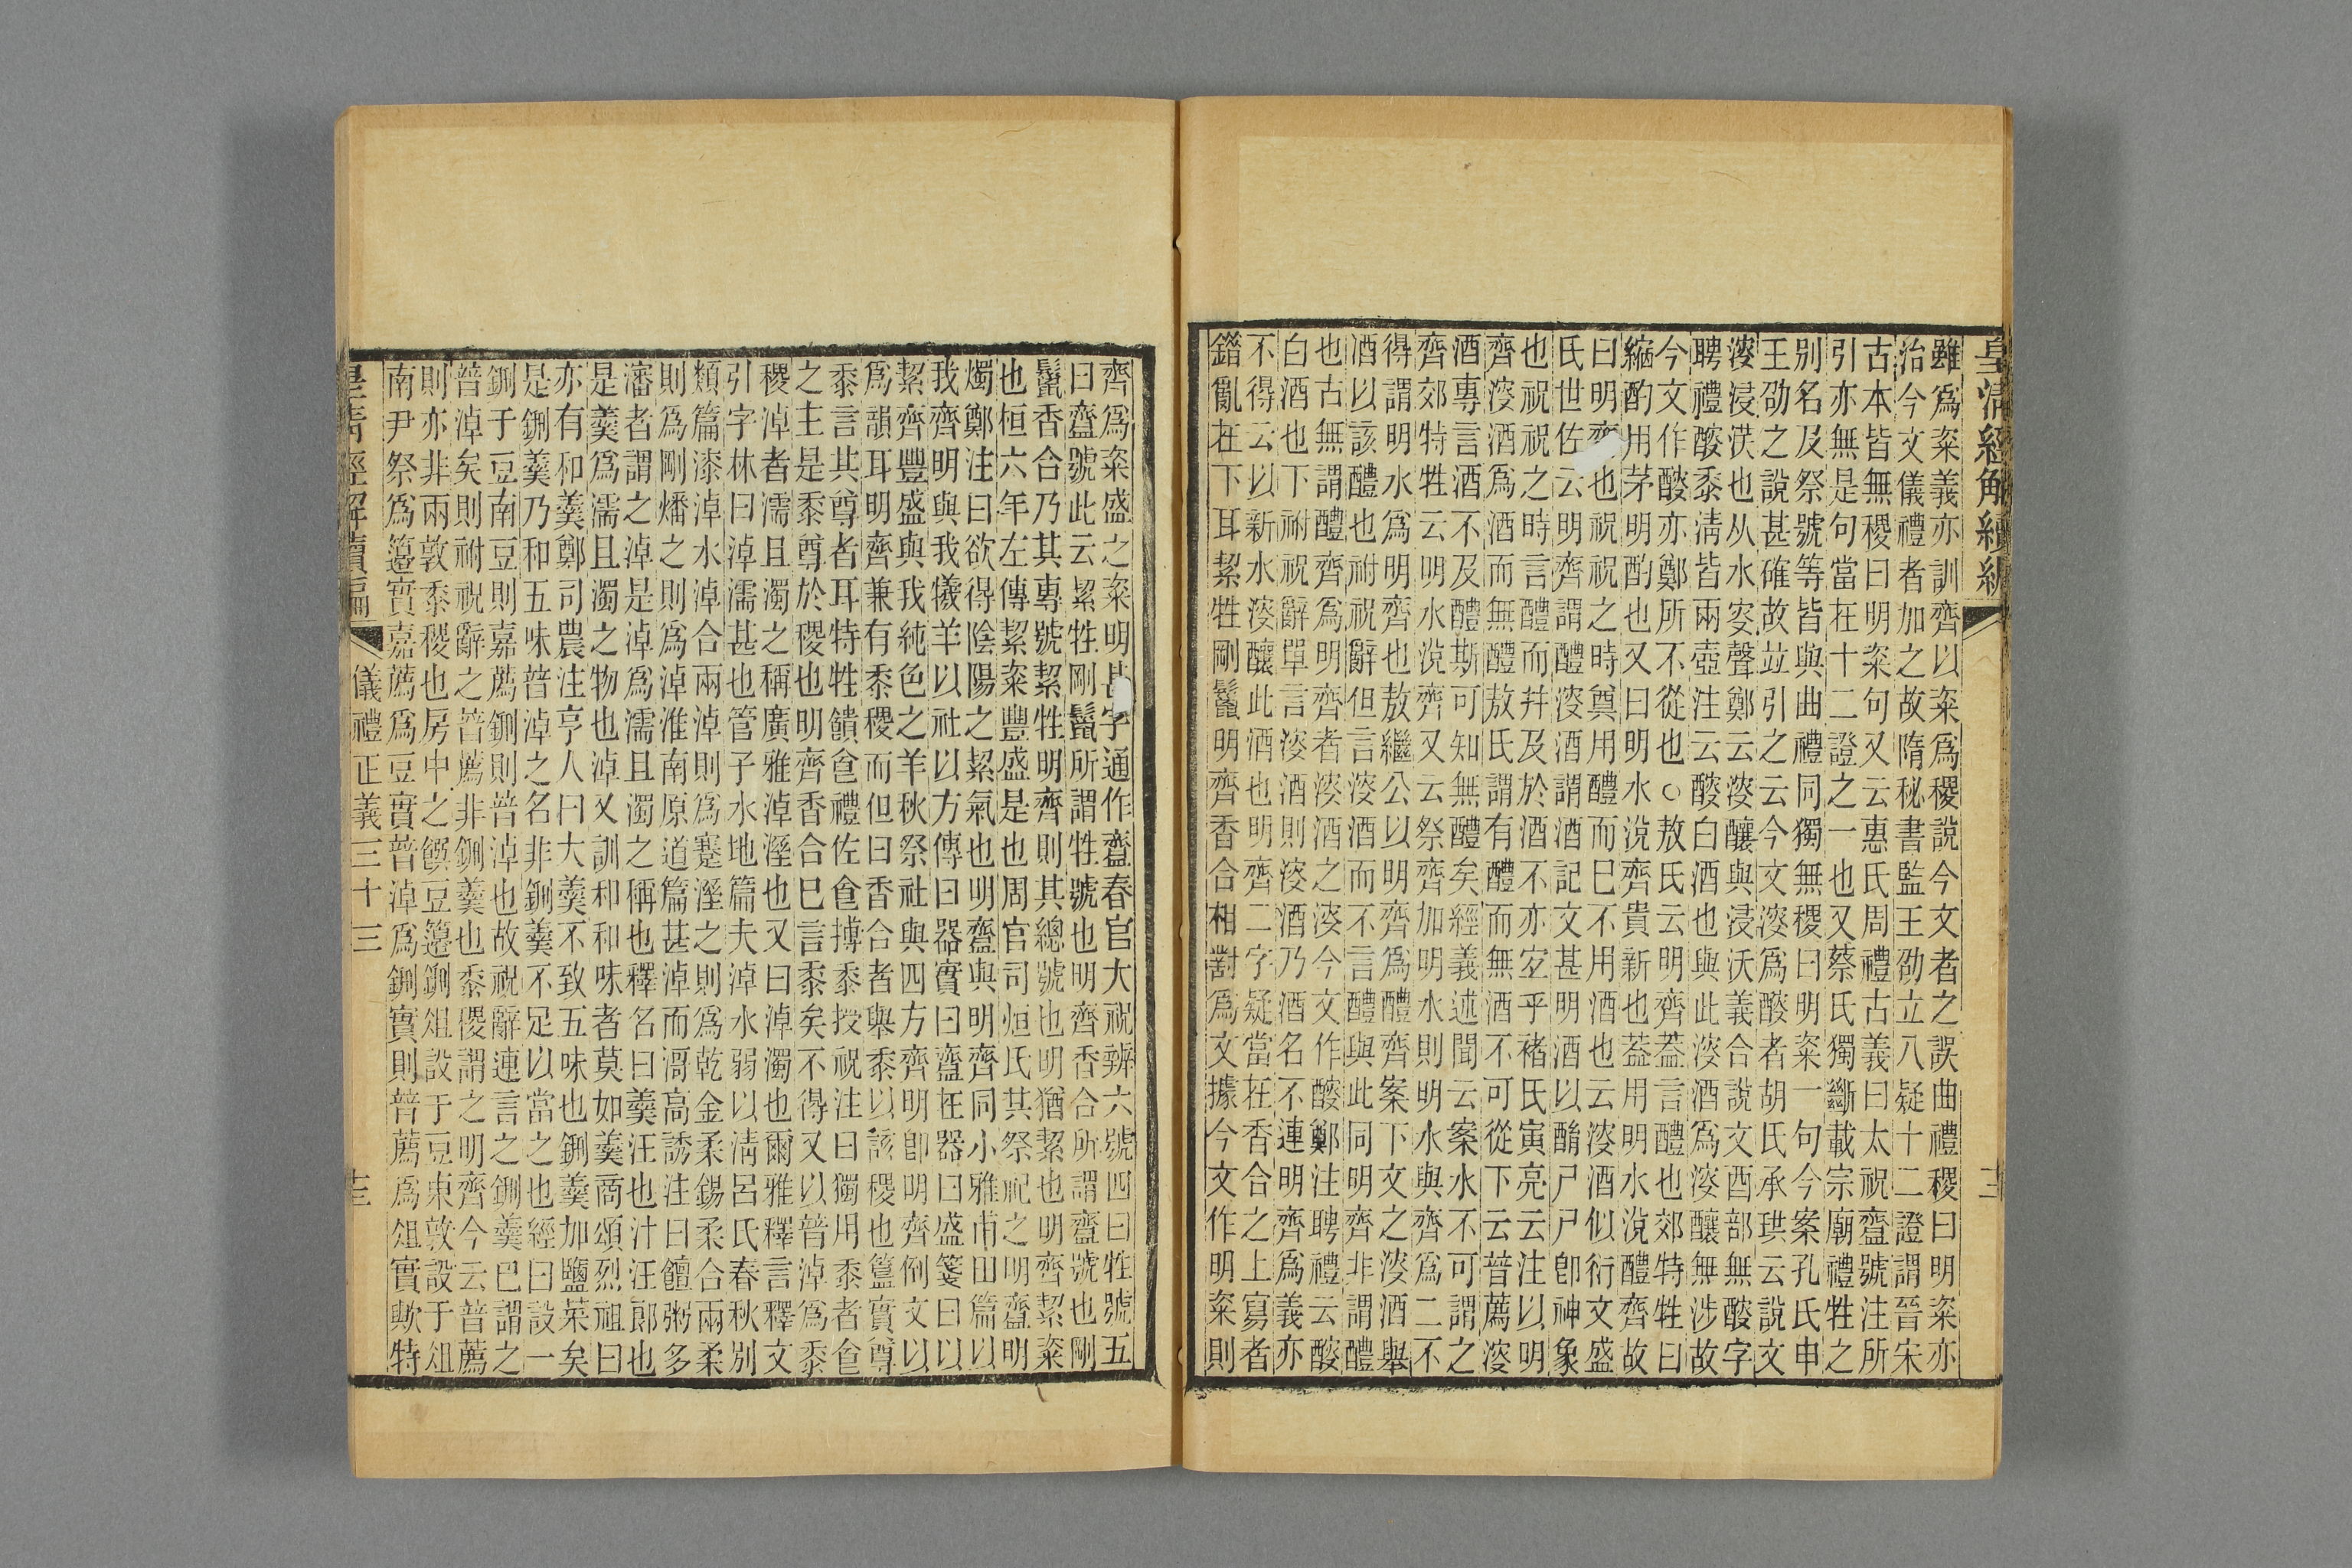 皇清經解續編　三
雖爲粢義亦訓齊以粢爲稷說今文者之誤曲禮稷曰明粢亦
治今文儀禮者加之故隋秘書監王劭立八疑十二證謂晉宋
古本皆無稷曰明粢句又云惠氏周禮古義曰太祝齍號注所
引亦無是句當在十二證之一也又蔡氏獨斷載宗廟禮牲之
別名及祭號等皆與曲禮同獨無稷曰明粢一句今案孔氏申
王劭之說甚確故並引之云今文溲爲醙者胡氏承珙云說文
溲浸㳸也从水叜聲鄭云溲釀與浸沃義合說文酉部無醙字
聘禮醙黍淸皆兩壺注云醙白酒也與此溲酒爲溲釀無涉故
今文作醙亦鄭所不從也○敖氏云明齊葢言醴也郊特牲曰
縮酌用茅明酌也又曰明水涗齊貴新也葢用明水涗醴齊故
曰明齊也祝祝之時奠用醴而巳不用酒也云溲酒似衍文盛
氏世佐云明齊謂醴溲酒謂酒記文甚明酒以酳尸尸卽神象
也祝祝之時言醴而幷及於酒不亦宐乎褚氏寅亮云注以明
齊溲酒爲酒而無醴敖氏謂有醴而無酒不可從下云普薦溲
酒專言酒不及醴斯可知無醴矣經義述聞云案水不可謂之
齊郊特牲云明水涗齊又云祭齊加明水則明水與齊爲二不
得謂明水爲明齊也敖繼公以明齊爲醴齊案下文之溲酒舉
酒以該醴也祔祝辭但言溲酒而不言醴與此同明齊非謂醴
也古無謂醴齊爲明齊者溲酒之溲今文作醙鄭注聘禮云醙
白酒也下祔祝辭單言溲酒則溲酒乃酒名不連明齊爲義亦
不得云以新水溲釀此酒也明齊二字疑當在香合之上寫者
錯亂在下耳絜牲剛鬛明齊香合相對爲文據今文作明粢則
齊爲粢盛之粢明甚字通作齍春官大祝辨六號四曰牲號五
曰齍號此云絜牲剛鬛所謂牲號也明齊香合所謂齍號也剛
鬛香合乃其專號絜牲明齊則其總號也明猶絜也明齊絜粢
也桓六年左傳絜粢豐盛是也周官司烜氏其祭祀之明齍明
燭鄭注曰欲得陰陽之絜氣也明齍與明齊同小雅甫田篇以
我齊明與我犧羊以社以方傳曰器實曰齍在器曰盛箋曰以
絜齊豐盛與我純色之羊秋祭社與四方齊明卽明齊例文以
爲韻耳明齊兼有黍稷而但曰香合者舉黍以該稷也簋實尊
黍言其尊者耳特牲饋食禮佐食摶黍授祝注曰獨用黍者食
之主是黍尊於稷也明齊香合巳言黍矣不得又以普淖爲黍
稷淖者濡且濁之稱廣雅淖溼也又曰淖濁也爾雅釋言釋文
引字林曰淖濡甚也管子水地篇夫淖水弱以淸呂氏春秋別
類篇漆淖水淖合兩淖則爲蹇溼之則爲乾金柔錫柔合兩柔
則爲剛燔之則爲淖淮南原道篇甚淖而滒高誘注曰饘粥多
瀋者謂之淖是淖爲濡且濁之稱也釋名曰羹汪也汁汪郎也
是羹爲濡且濁之物也淖又訓和和味者莫如羹商頌烈祖曰
亦有和羹鄭司農注亨人曰大羹不致五味也鉶羹加鹽菜矣
是鉶羹乃和五味普淖之名非鉶羹不足以當之也經曰設一
鉶于豆南豆則嘉薦鉶則普淖也故祝辭連言之鉶羹巳謂之
普淖矣則祔祝辭之普薦非鉶羹也黍稷謂之明齊今云普薦
則亦非兩敦黍稷也房中之饌豆籩鉶俎設于豆東敦設于俎
南尹祭爲籩實嘉薦爲豆實普淖爲鉶實則普薦爲俎實歟特
皇淸經解續編　儀禮正義三十三　十三